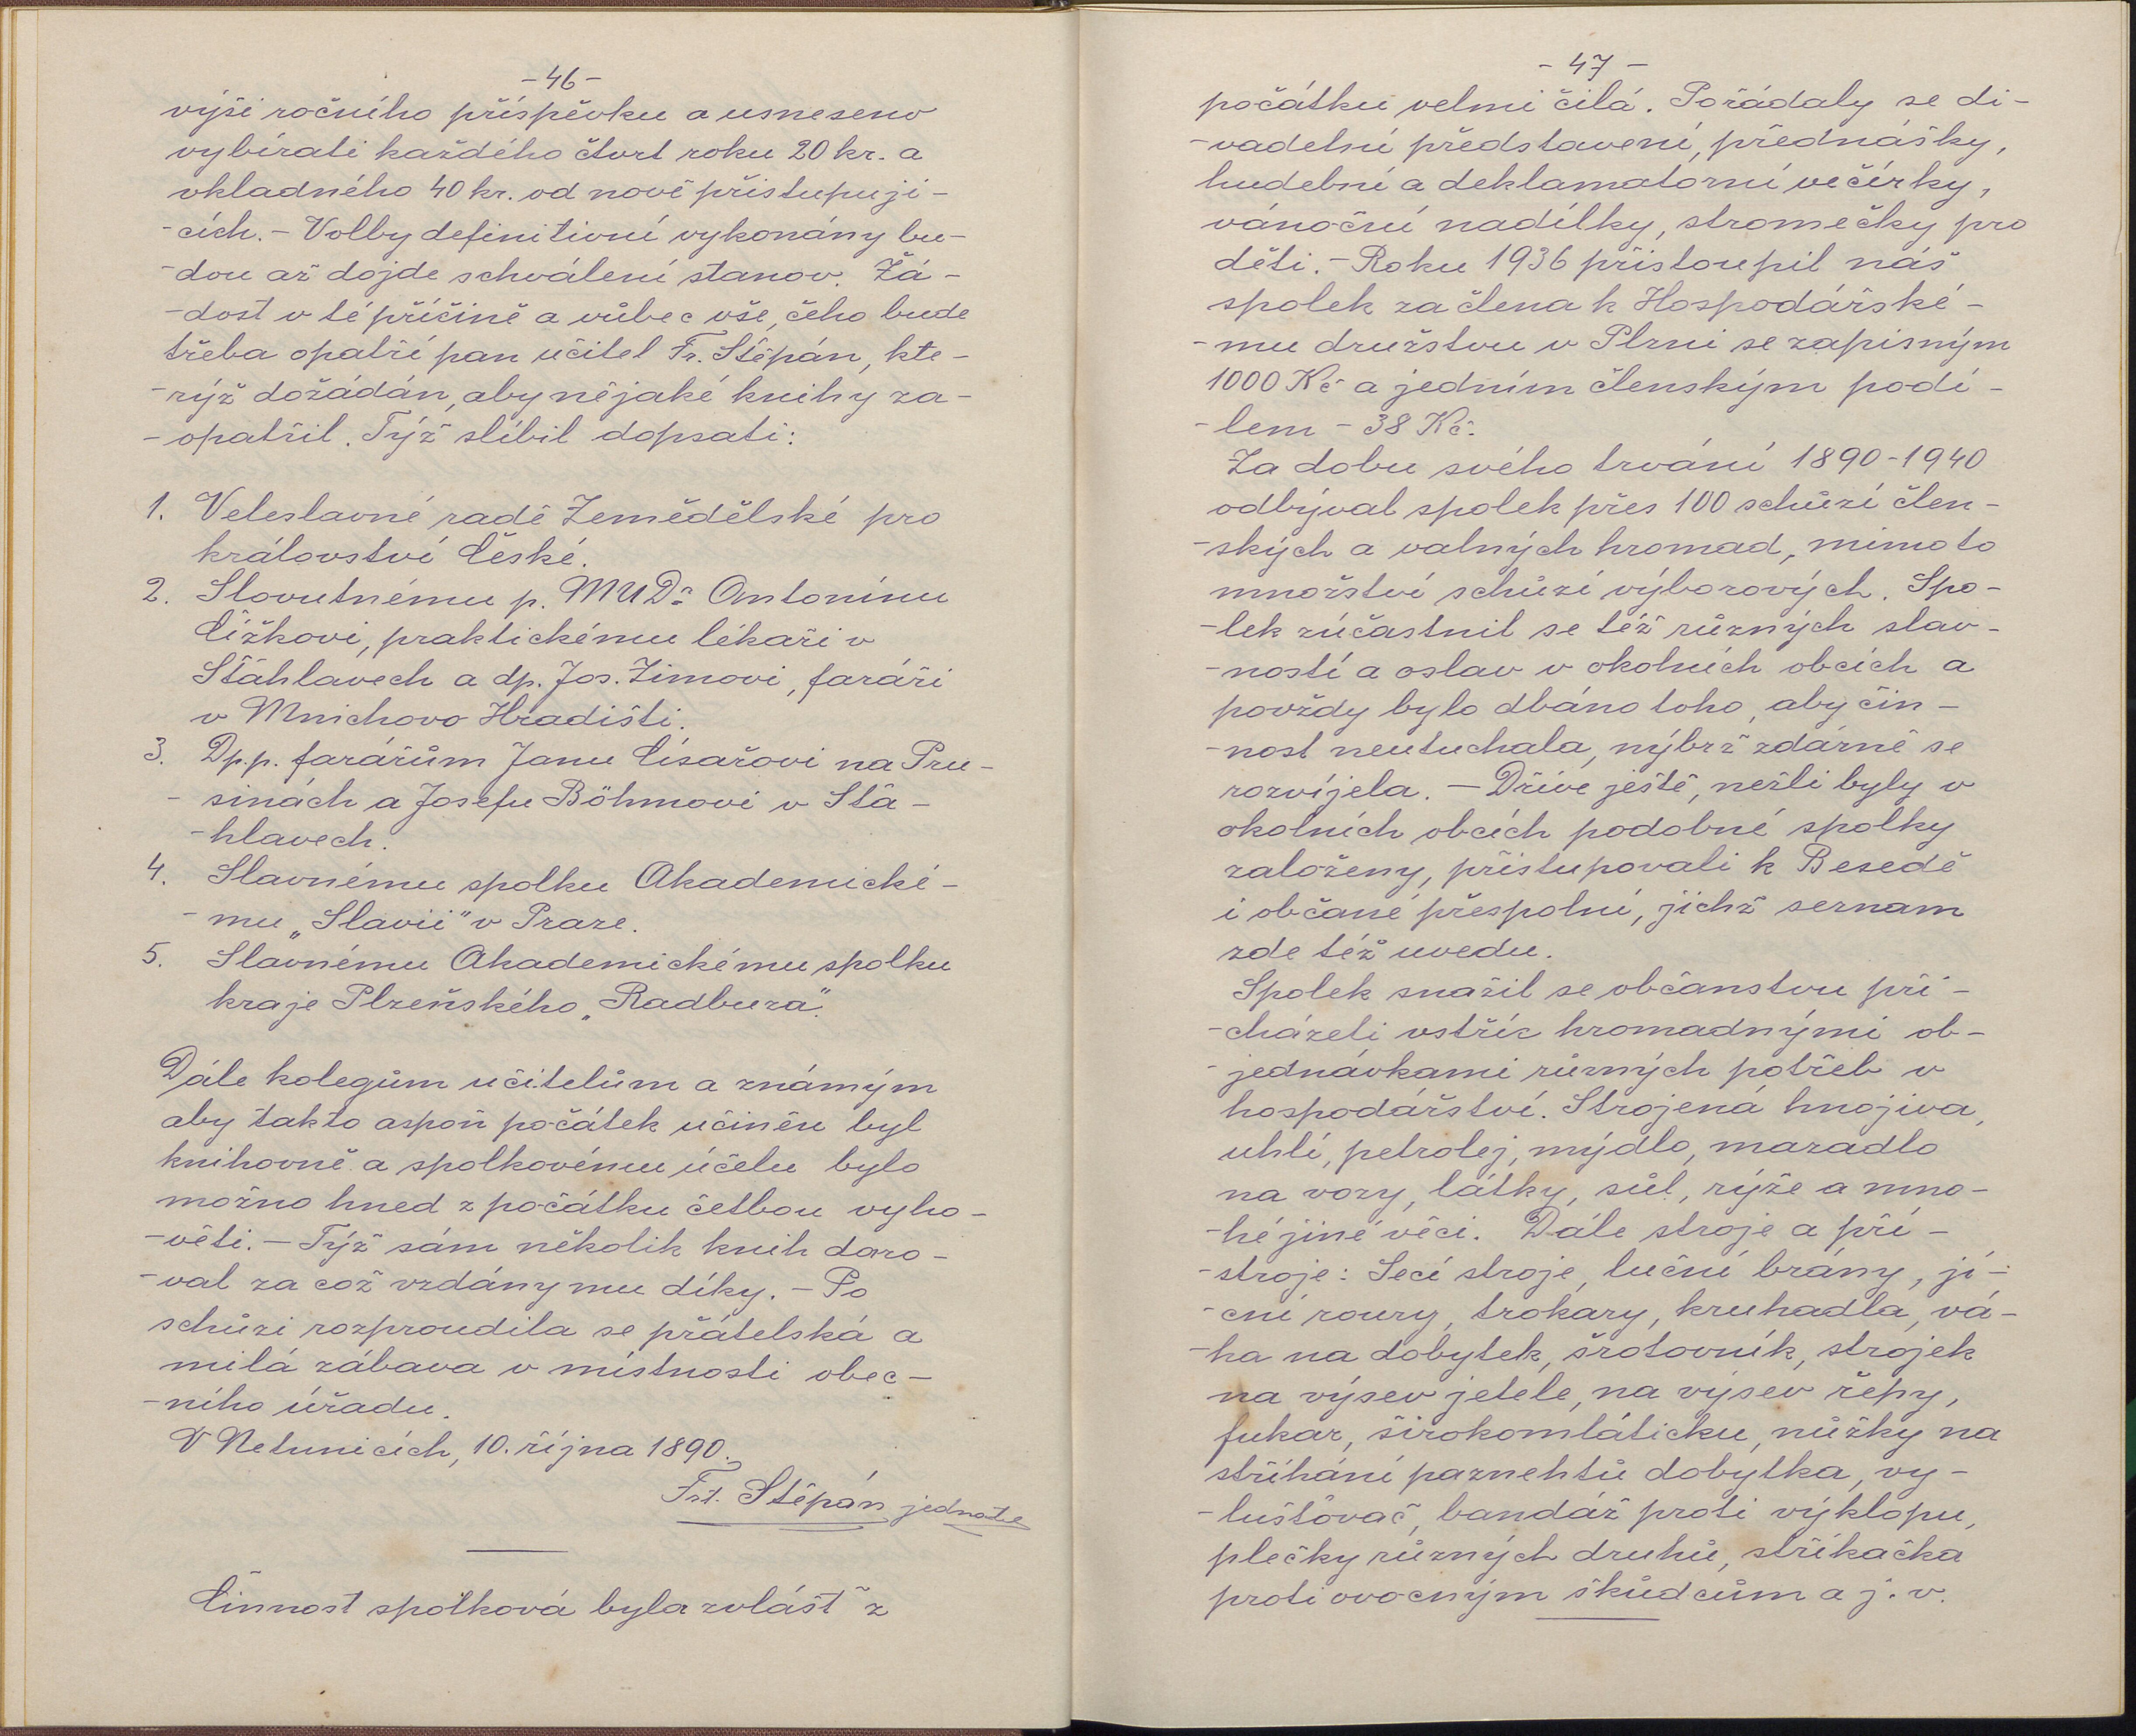 -46-
výši ročního příspěvku a usneseno
vybírati každého čtvrt roku 20 kr. a
vkladného 40 kr. od nově přistupují-
-cích.- Volby definitivní vykonány bu-
-dou až dojde schválení stanov. Žá-
-dost v té příčině a vůbec vše, čeho bude
třeba opatří pan učitel Fr. Štěpán, kte-
-rýž dožádán, aby nějaké knihy za-
-opatřil. Týž slíbil dopsati:
1. Veleslavné radě Zemědělské pro
království České.
2. Slovutnému p. MUDr Antonínu
Čížkovi, praktickému lékaři v
Šťáhlavech a dp. Jos. Zimovi, faráři
v Mnichovo Hradišti.
3. Dp.p. farářům Janu Císařovi na Pru-
- sinách a Josefu Böhmovi v Šťá-
-hlavech.
4. Slavnému spolku Akademické-
- mu „Slavii" v Praze.
5. Slavnému Akademickému spolku
kraje Plzeňského „Radbuza".
Dále kolegům učitelům a známým
aby takto aspoň počátek učiněn byl
knihovně a spolkovému účelu bylo
možno hned z počátku četbou vyho-
-věti.- Týž sám několik knih daro-
-val za což vzdány mu díky. - Po
schůzi rozproudila se přátelská a
milá zábava v místnosti obec-
-ního úřadu.
V Netunicích, 10. října 1890.
Frt. Štěpán jednatel
Činnost spolková byla zvlášť z
- 47 -
počátku velmi čilá. Pořádaly se di-
-vadelní představení, přednášky,
hudební a deklamatorní večírky,
vánoční nadílky, stromečky pro
děti.- Roku 1936 přistoupil náš
spolek za člena k Hospodářské-
-mu družstvu v Plzni se zápisným
1000 Kč a jedním členským podí-
-lem - 38 Kč.
Za dobu svého trvání 1890-1940
odbýval spolek přes 100 schůzí člen-
-ských a valných hromad, mimoto
množství schůzí výborových. Spo-
-lek zúčastnil se též různých slav-
-ností a oslav v okolních obcích a
povždy bylo dbáno toho, aby čin-
-nost neutuchala, nýbrž zdárně se
rozvíjela. - Dříve ještě, nežli byly v
okolních obcích podobné spolky
založeny, přistupovali k Besedě
i občané přespolní, jichž seznam
zde též uvedu.
Spolek snažil se občanstvu při-
-cházeti vstříc hromadnými ob-
-jednávkami různých potřeb v
hospodářství. Strojená hnojiva,
uhlí, petrolej, mýdlo, mazadlo
na vozy, látky, sůl, rýže a mno-
-hé jiné věci. Dále stroje a pří-
-stroje: Secí stroje, luční brány, jí-
-cní roury, trokary, kruhadla, vá-
-ha na dobytek, šrotovník, strojek
na výsev jetele, na výsev řepy,
fukar, širokomlátičku, nůžky na
stříhání paznehtů dobytka, vy-
-lušťovač, bandáž proti výklopu,
plečky různých druhů, stříkačka
proti ovocným škůdcům a j. v.